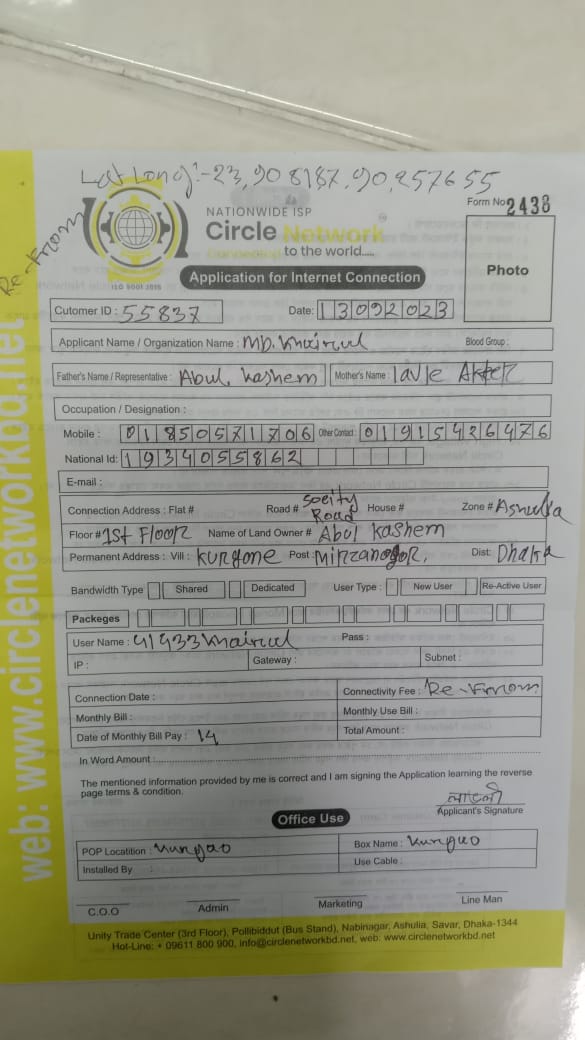 Lat Long:-23,908187,90,257655
Re-From
Form No 2438
NATIONWIDE ISP
Circle Network
Connecting to the world....
ISO 9001:2015
Application for Internet Connection
Photo
Cutomer ID : 55837 Date: 13092023
Applicant Name / Organization Name : MD. Khairul Blood Group :
Father's Name / Representative : Abul Kashem Mother's Name : Akter
Occupation / Designation :
Mobile : 01850571706 Other Contact : 01915426476
National Id: 1934055862
E-mail :
Connection Address : Flat # Road # Socity Road House # Zone # Ashulia
Floor # 1st Floor Name of Land Owner # Abul Kashem
Permanent Address : Vill : Kurgone Post : Mirzanogor, Dist: Dhaka
Bandwidth Type Shared Dedicated User Type : New User Re-Active User
Packeges
User Name : 41433khairul Pass :
IP : Gateway : Subnet :
Connection Date : Connectivity Fee : Re-From
Monthly Bill : Monthly Use Bill :
Date of Monthly Bill Pay : 14 Total Amount :
In Word Amount :
The mentioned information provided by me is correct and I am signing the Application learning the reverse
page terms & condition.
Applicant's Signature
Office Use
POP Locatition : Box Name :
Installed By : Use Cable :
C.O.O Admin Marketing Line Man
Unity Trade Center (3rd Floor), Pollibiddut (Bus Stand), Nabinagar, Ashulia, Savar, Dhaka-1344
Hot-Line: + 09611 800 900, info@circlenetworkbd.net, web: www.circlenetworkbd.net
web: www.circlenetworkbd.net